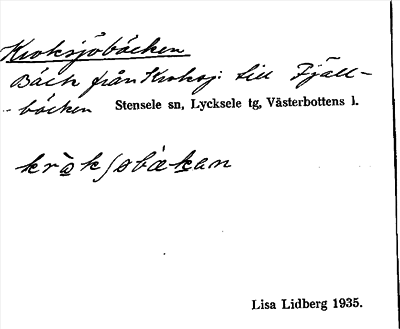 Kroksjöbäcken
Bäck från Kroksj. till Fjäll-
-bäcken Stensele sn, Lycksele tg, Västerbottens l.
krò̱kʃøbàḵan
Lisa Lidberg 1935.